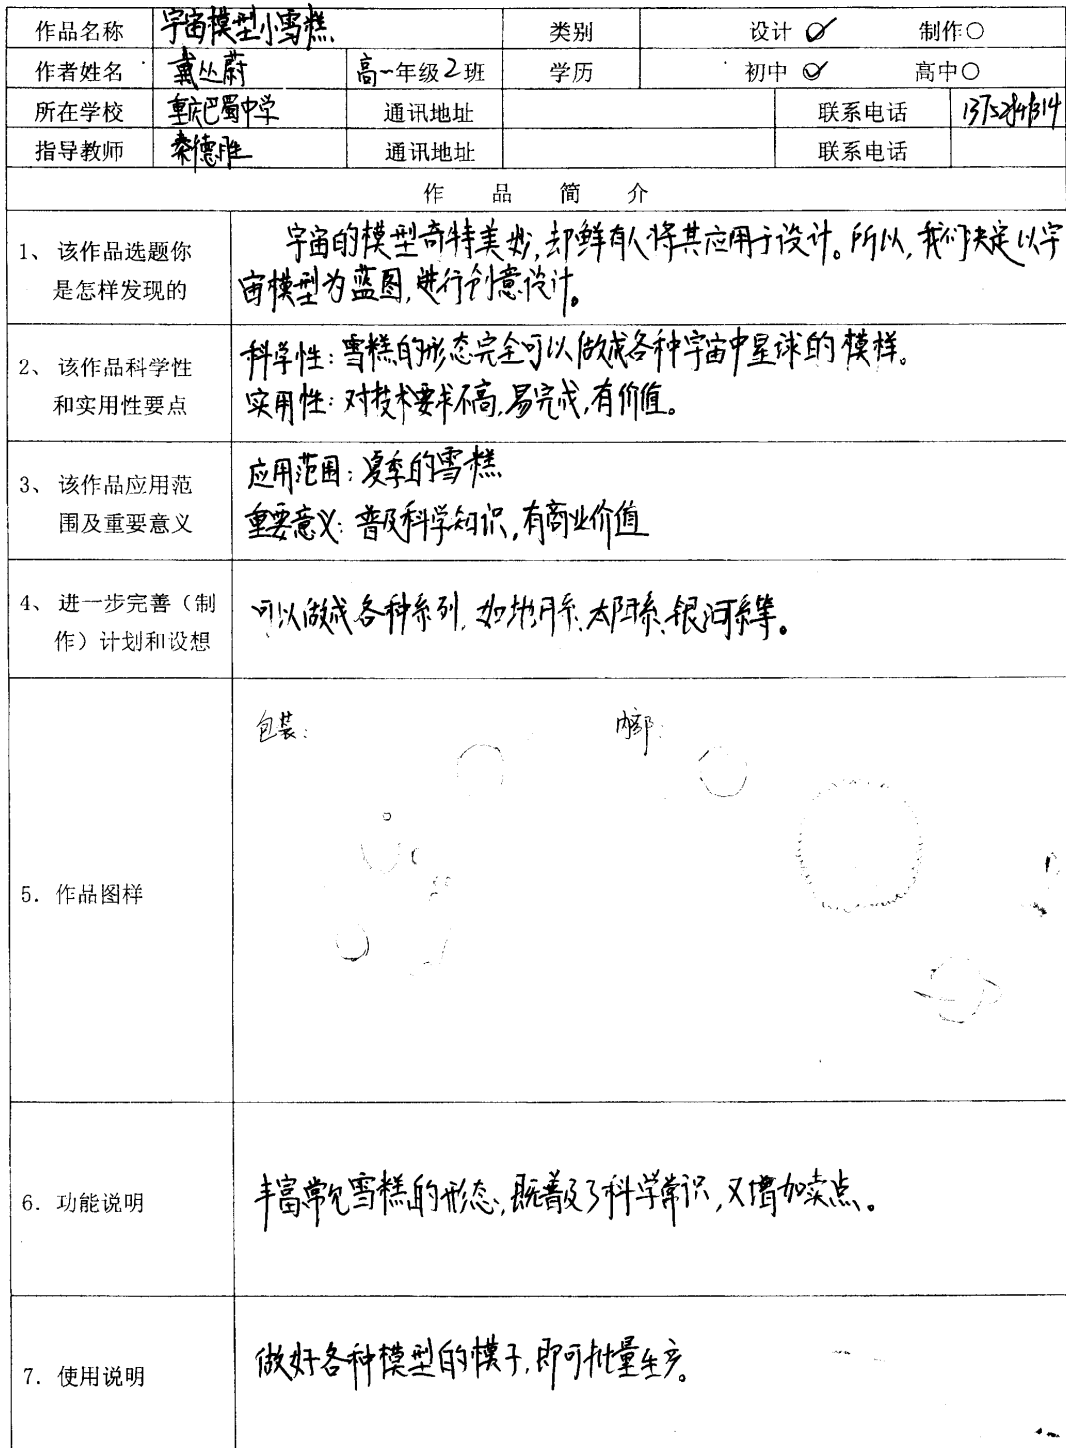 作品名称 宇宙模型小雪糕 类别 设计 制作
作者姓名 戴丛蔚 高一年级2班 学历 初中 高中
所在学校 重庆巴蜀中学 通讯地址 联系电话
指导教师 秦德胜 通讯地址 联系电话
作品简介
1、该作品选题你
是怎样发现的
宇宙的模型奇特美妙,却鲜有人将其应用于设计。所以,我们决定以宇
宙模型为蓝图,进行创意设计。
2、该作品科学性
和实用性要点
科学性:雪糕的形态完全可以做成各种宇宙中星球的模样。
实用性:对技术要求不高,易完成,有价值。
3、该作品应用范
围及重要意义
应用范围:夏季的雪糕
重要意义:普及科学知识,有商业价值
4、进一步完善(制
作)计划和设想
可以做成各种系列,如地月系、太阳系、银河系等。
5. 作品图样
包装: 内部:
6. 功能说明
丰富常见雪糕的形态,既普及了科学常识,又增加卖点。
7. 使用说明
做好各种模型的模子,即可批量生产。